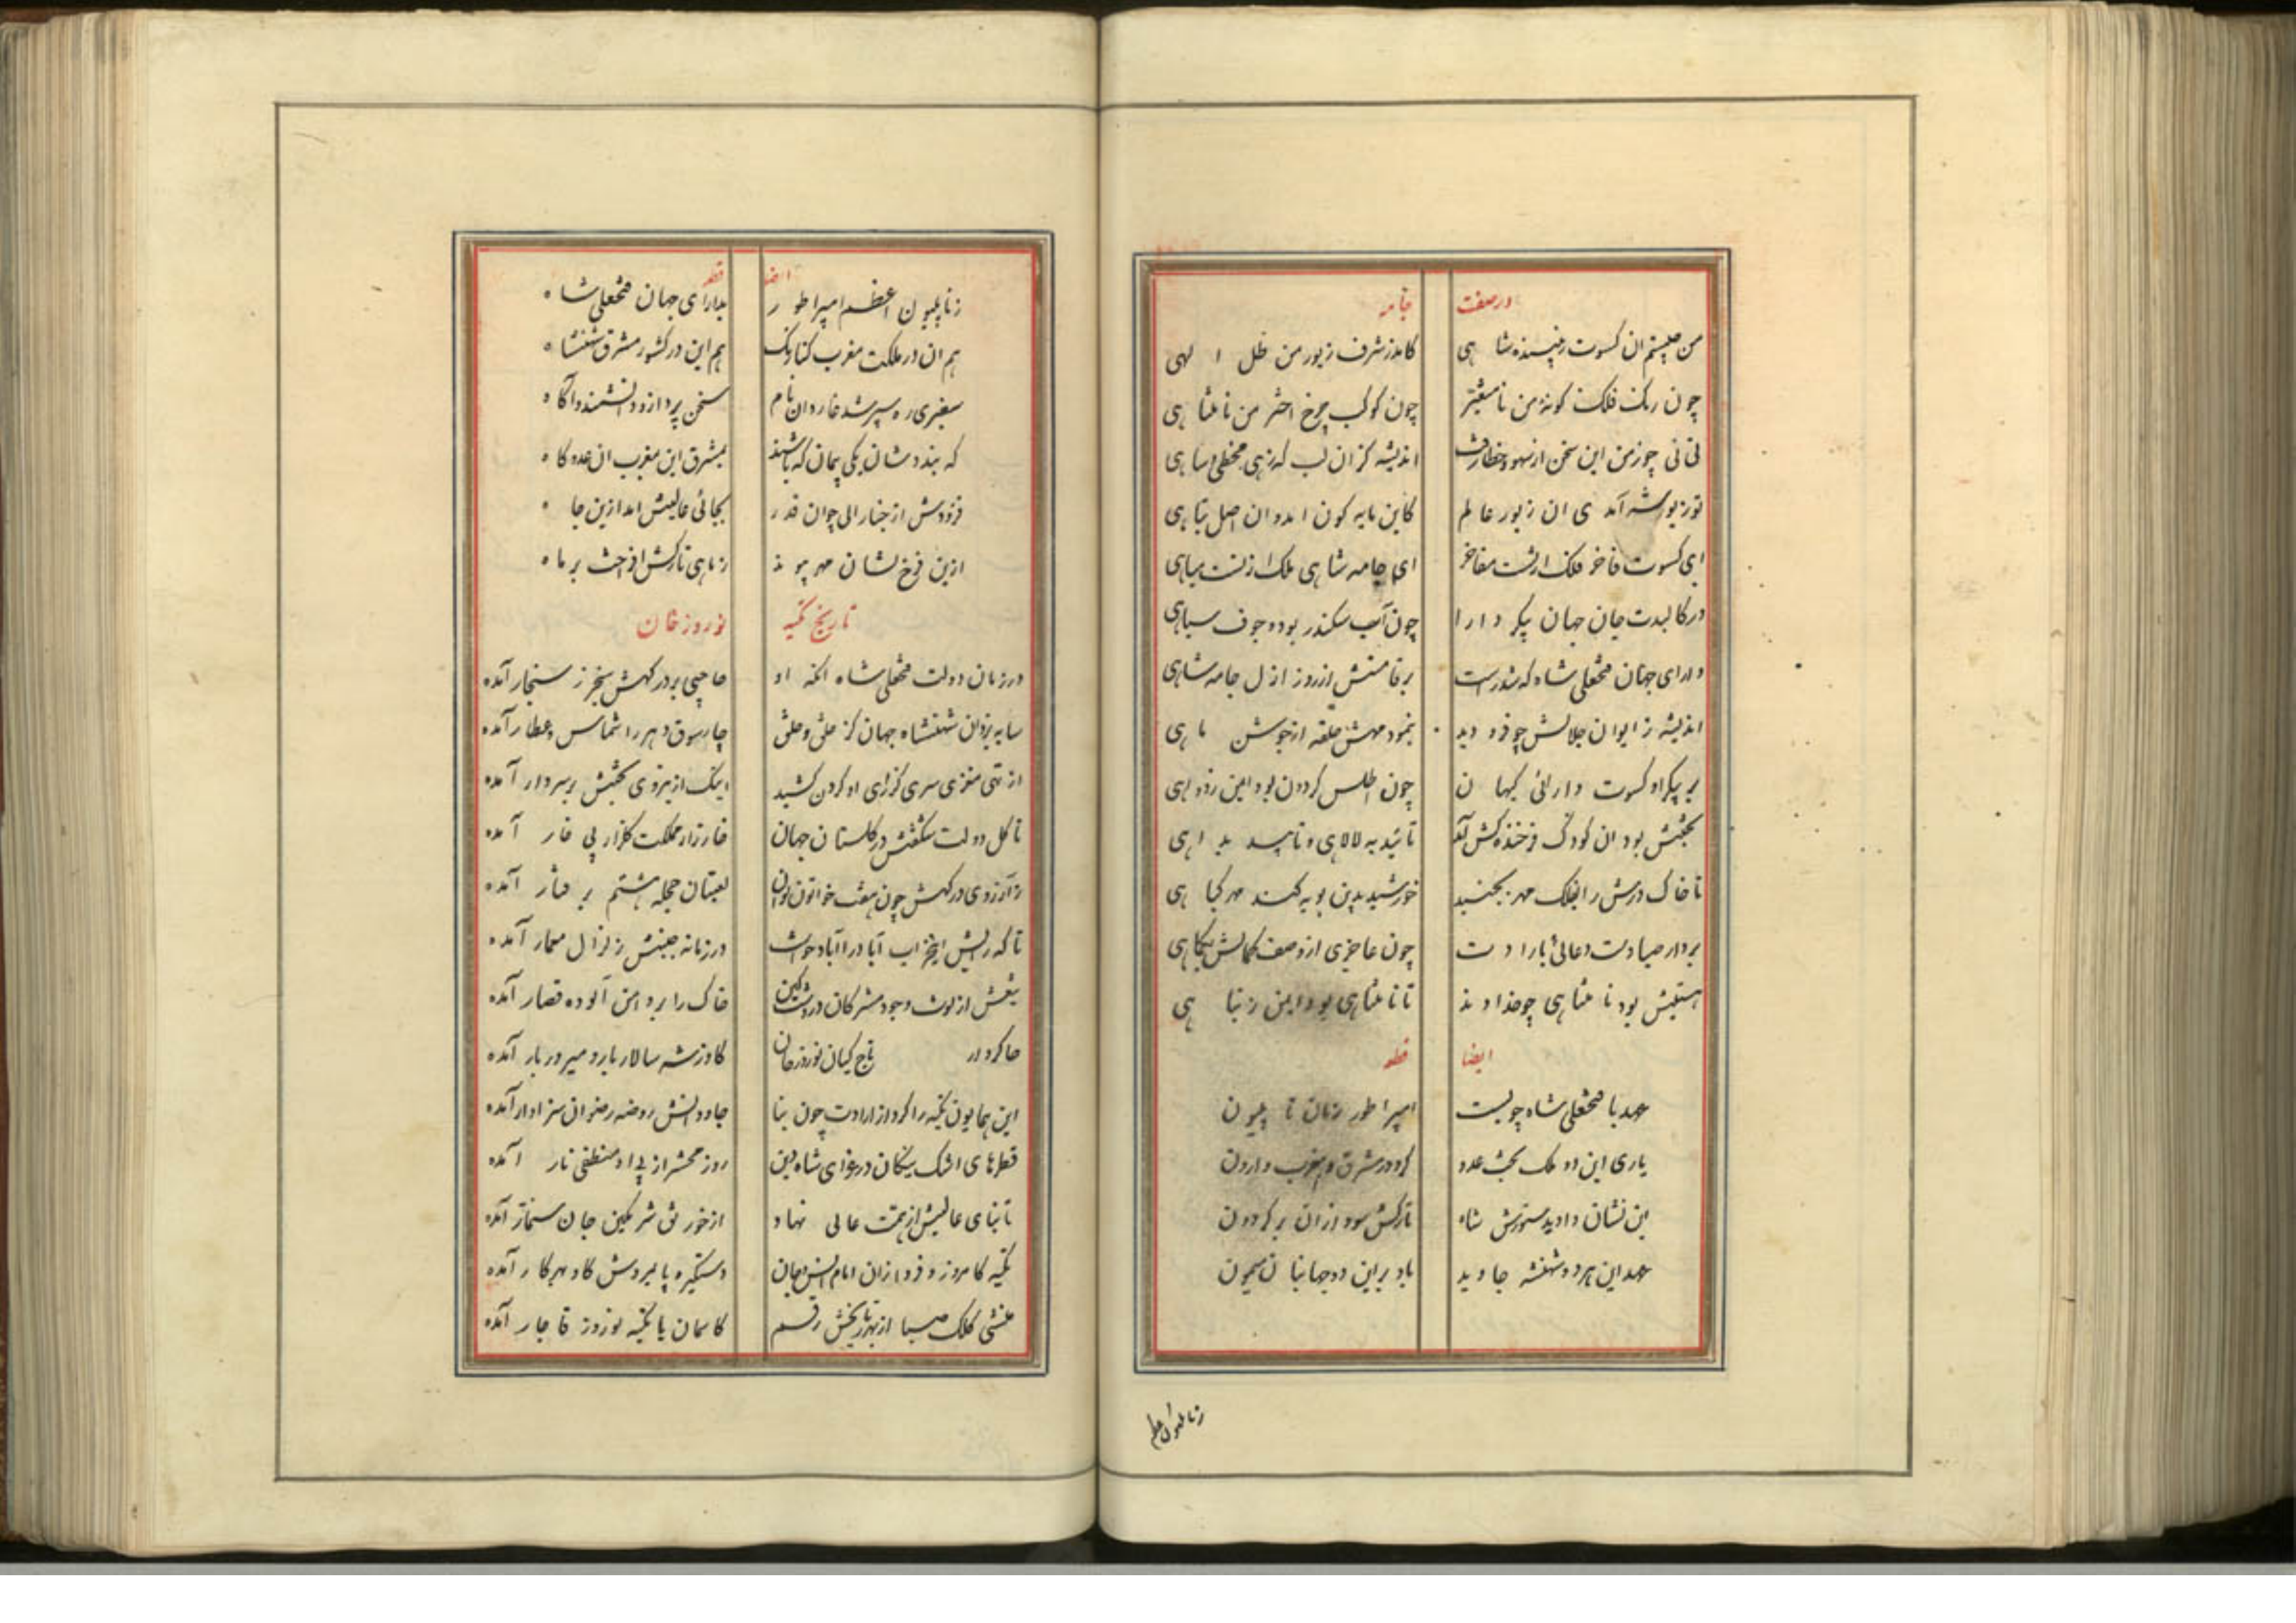 در صفت جامه
من چیستم آن کسوت زیبنده شاهی کامد ز شرف زیور من ظل الهی
چون رنک فلک کونهٔ من نامتغیر چون کوکب چرخ اختر من نامتناهی
نی نی چو ز من این سخن از سهو و خطا رفت اندیشه کزان لب که زهی مخطی و ساهی
تو ز زیور شه آمدی ان زیور عالم کاین مایه کون امد و ان اصل تباهی
ای کسوت فاخر فلک ارتست مفاخر ای جامه شاهی ملک ار تست مباهی
در کالبدت جان جهان پیکر دارا چون آب سکندر بود و جوف سیاهی
دارای جهان فتحعلی شاه که شد راست بر قامتش از روز ازل جامه شاهی
اندیشه ز ایوان جلالش چو فرو دید بنمود مهش حلقه از جوشن ماهی
بر پیکر او کسوت دارائی کیهان چون اطلس کردون بود ایمن ز
بختش بود ان کودک فرخنده کش
تا خاک درش را بفلک مهر بجنبد خورشید بدین پویه کند مهر کیا هی
بردار صبا دست دعائی بارادت چون عاجزی از وصف کمالش بکماهی
هستیش بود نامتناهی چو خداوند تا نامتناهی بود ایمن ز تناهی
ایضا قطعه
عهد با فتحعلی شاه چو بست امپراطور زمان ناپلیون
یاری این دو ملک بخت عدو کرد در مشرق و مغرب وارون
این نشان داد بدستورش شاه تارکش سود ازان بر کردون
عهد این هر دو شهنشه جاوید باد بر این دو جهانبان میمون
ایضا قطعه
ز ناپلیون اعظم امپراطور بدارای جهان فتحعلی شاه
هم ان در ملکت مغرب هم این در کشور مشرق شهنشاه
سفیری ره سپر شد سخن پرداز و دانشمند و آکاه
که بندد شان یکی پیمان که باشند بمشرق این بمغرب ان عدو کاه
فزودش از جنرالی چو ان قدر بجائی عالیش امد ازین جاه
ازین فرخ نشان مهر پیوند ز ماهی تارکش افراخت بر ماه
تاریخ تکیه نوروز خان
در زمان دولت فتحعلی شاه انکه او حاجبی بر درکهش سنجر ز سنجار آمده
سایه یزدان شهنشاه جهان کز خلق و خلق چارسوق دهر را شماس و عطار آمده
از تهی مغزی سری کز رای او کردن کشید اینک از نیروی بختش بر سر دار آمده
تا کل دولت شکفتش در کلستان جهان خارزار مملکت کلزار بی خار آمده
ز آرزوی درکهش چون هفت خواتون لعبتان حجله هشتم
تا که رایش در زمانه جنبش زلزال معمار آمده
تیغش از لوث وجود مشرکان خاک را بر دامن آلوده قصار آمده
چاکر دار تاج کیان نوروز خان کاو ز شه سالار بار و میر دربار آمده
این همایون تکیه را کرد از ارادت چون بنا جاودانش روضه رضوان سزاوار آمده
قطره های اشک نیکان در عزای شاه دین روز محشر از پی او منطفی نار آمده
تا بنای عالیش از همت عالی نهاد از خورنق شرمکین جان سنمار آمده
تکیه کامروز و فردا زان امام انس و جان دستکیر و پایمردش کاو بهر کار آمده
منشی کلک صبا از بهر تاریخش رقم کاسمان با تکیه نوروز قاجار آمده
ز ناپلیون اعظم